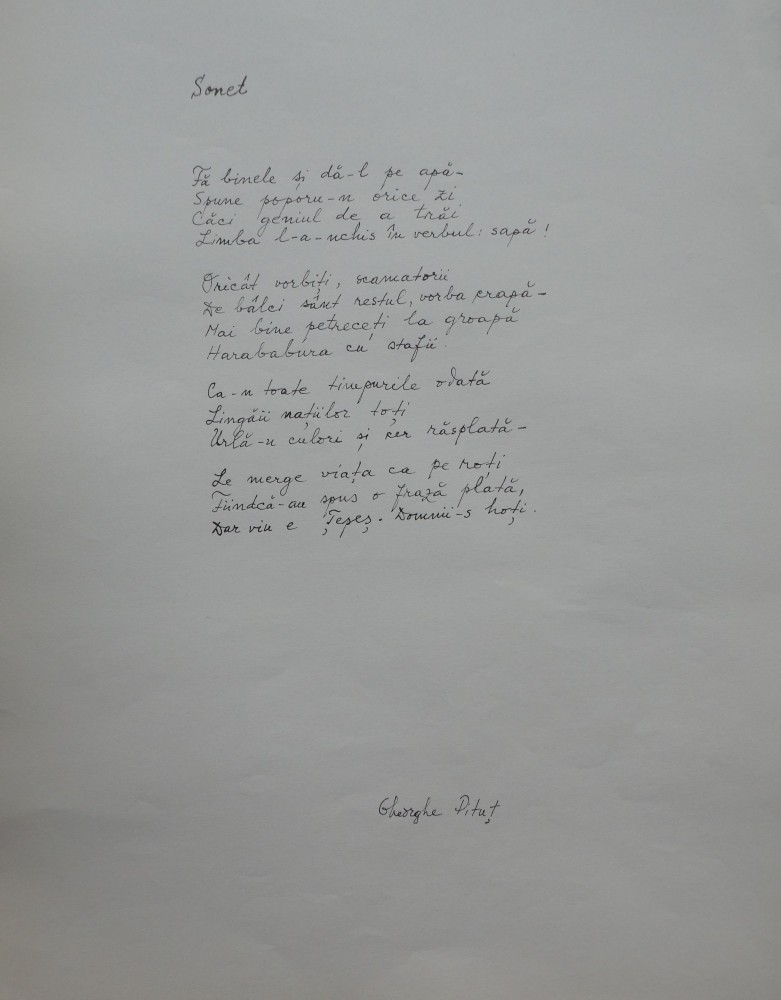 Sonet
Fă binele și dă-l pe apă-
Spune poporu-n orice zi
Căci geniul de a trăi
Limba l-a-nchis în verbul: sapă!
Oricât vorbiți, scamatorii
De bâlci sânt restul, vorba crapă-
Mai bine petreceți la groapă
Harababura cu stafii.
Ca-n toate timpurile odată
Lingăii națiilor toți
Urlă-n culori și cer răsplată-
Le merge viața ca pe roți
Fiindcă-au spus o frază plată,
Dar viu e Țepeș. Domnii-s hoți.
Gheorghe Pituț